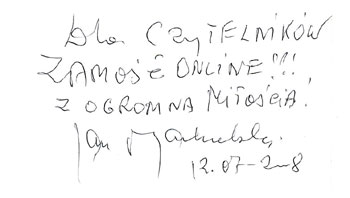 Dla CZYTELNIKÓW
ZAMOŚĆ ONLINE!!!
Z OGROMNĄ MIŁOŚCIĄ,
Jan
12.07-2008